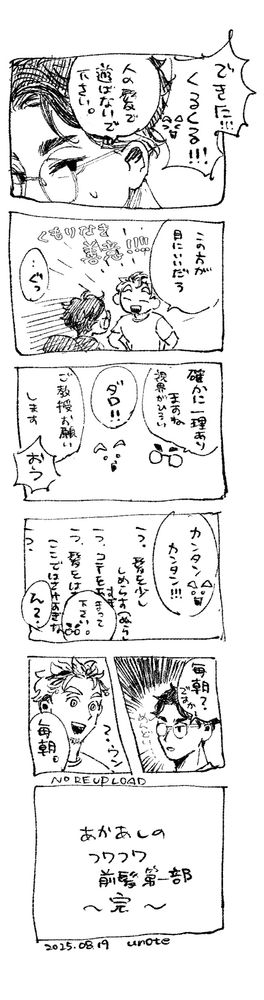 できた!!!
くるくる!!!
人の髪で
遊ばないで
下さい。
この方が
目にいいだろ
くもりなき
善意!!!!
…ぐっ
確かに一理あり
ますね
視界がひろい
ダロ!!
ご教授お願い
します
おう
カンタン!!!
カンタン!!
一つ、髪を少し
しめらすぬらす
一つ、コテをあ
まって
下さい。
一つ、髪をは
ここではね
一つ、
ん?
毎朝?
ですか
めんど…
?、ウン
毎朝。
NO REUPLOAD
あかあしの
フワフワ
前髪第一部
〜完〜
2025.08.19 unote